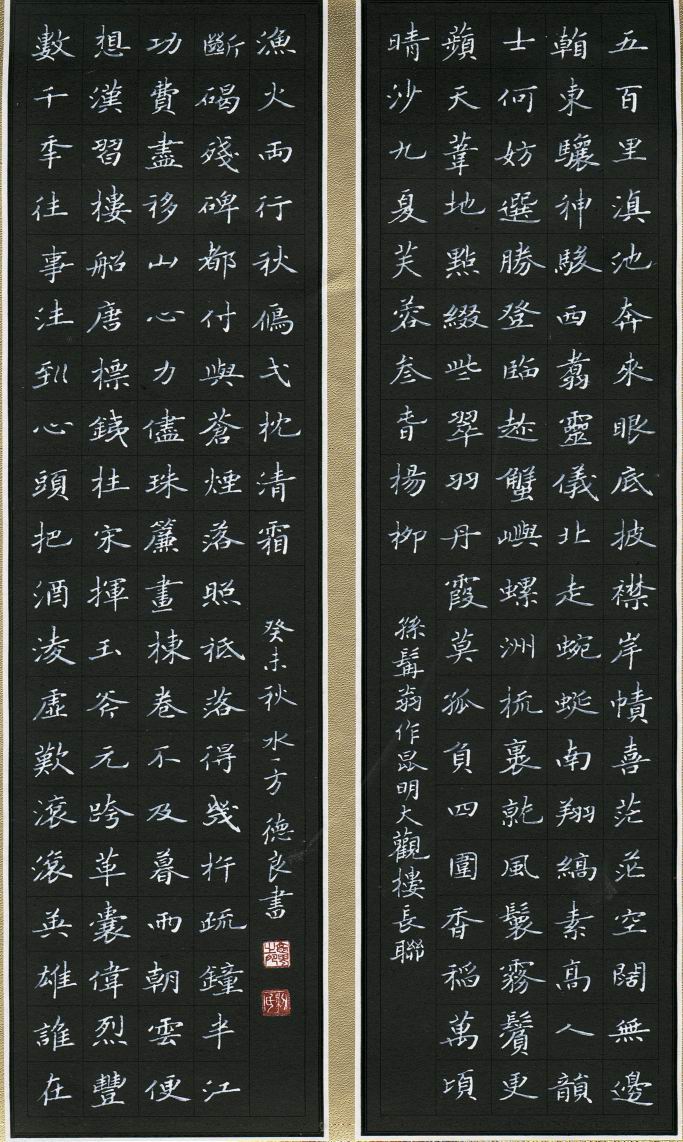 五百里滇池奔來眼底披襟岸幘喜茫茫空闊無邊
看東驤神駿西翥靈儀北走蜿蜒南翔縞素高人韻
士何妨選勝登臨趁蟹嶼螺洲梳裹就風鬟霧鬢更
蘋天葦地點綴些翠羽丹霞莫孤負四圍香稻萬頃
晴沙九夏芙蓉叁春楊柳
孫髯翁作昆明大觀樓長聯
數千秊往事注到心頭把酒淩虛歎滾滾英雄誰在
想漢習樓船唐標銕柱宋揮玉斧元跨革囊偉烈豐
功費盡移山心力儘珠簾畫棟卷不及暮雨朝雲便
斷碣殘碑都付與蒼煙落照衹落得幾杵疏鐘半江
漁火兩行秋鴈弌枕清霜
癸未秋水一方德良書